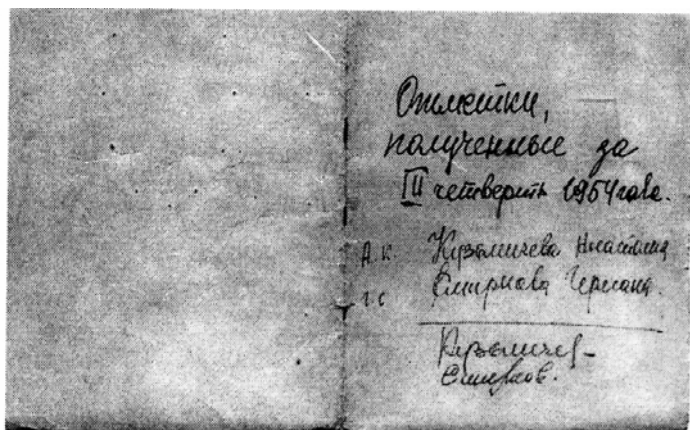 Отметки,
полученные за
III четверть 1954 года.
А.К. Кузьмичева Анатолия
Г.С. Смирнова Германа.
Кузьмичев-
Смирнов.